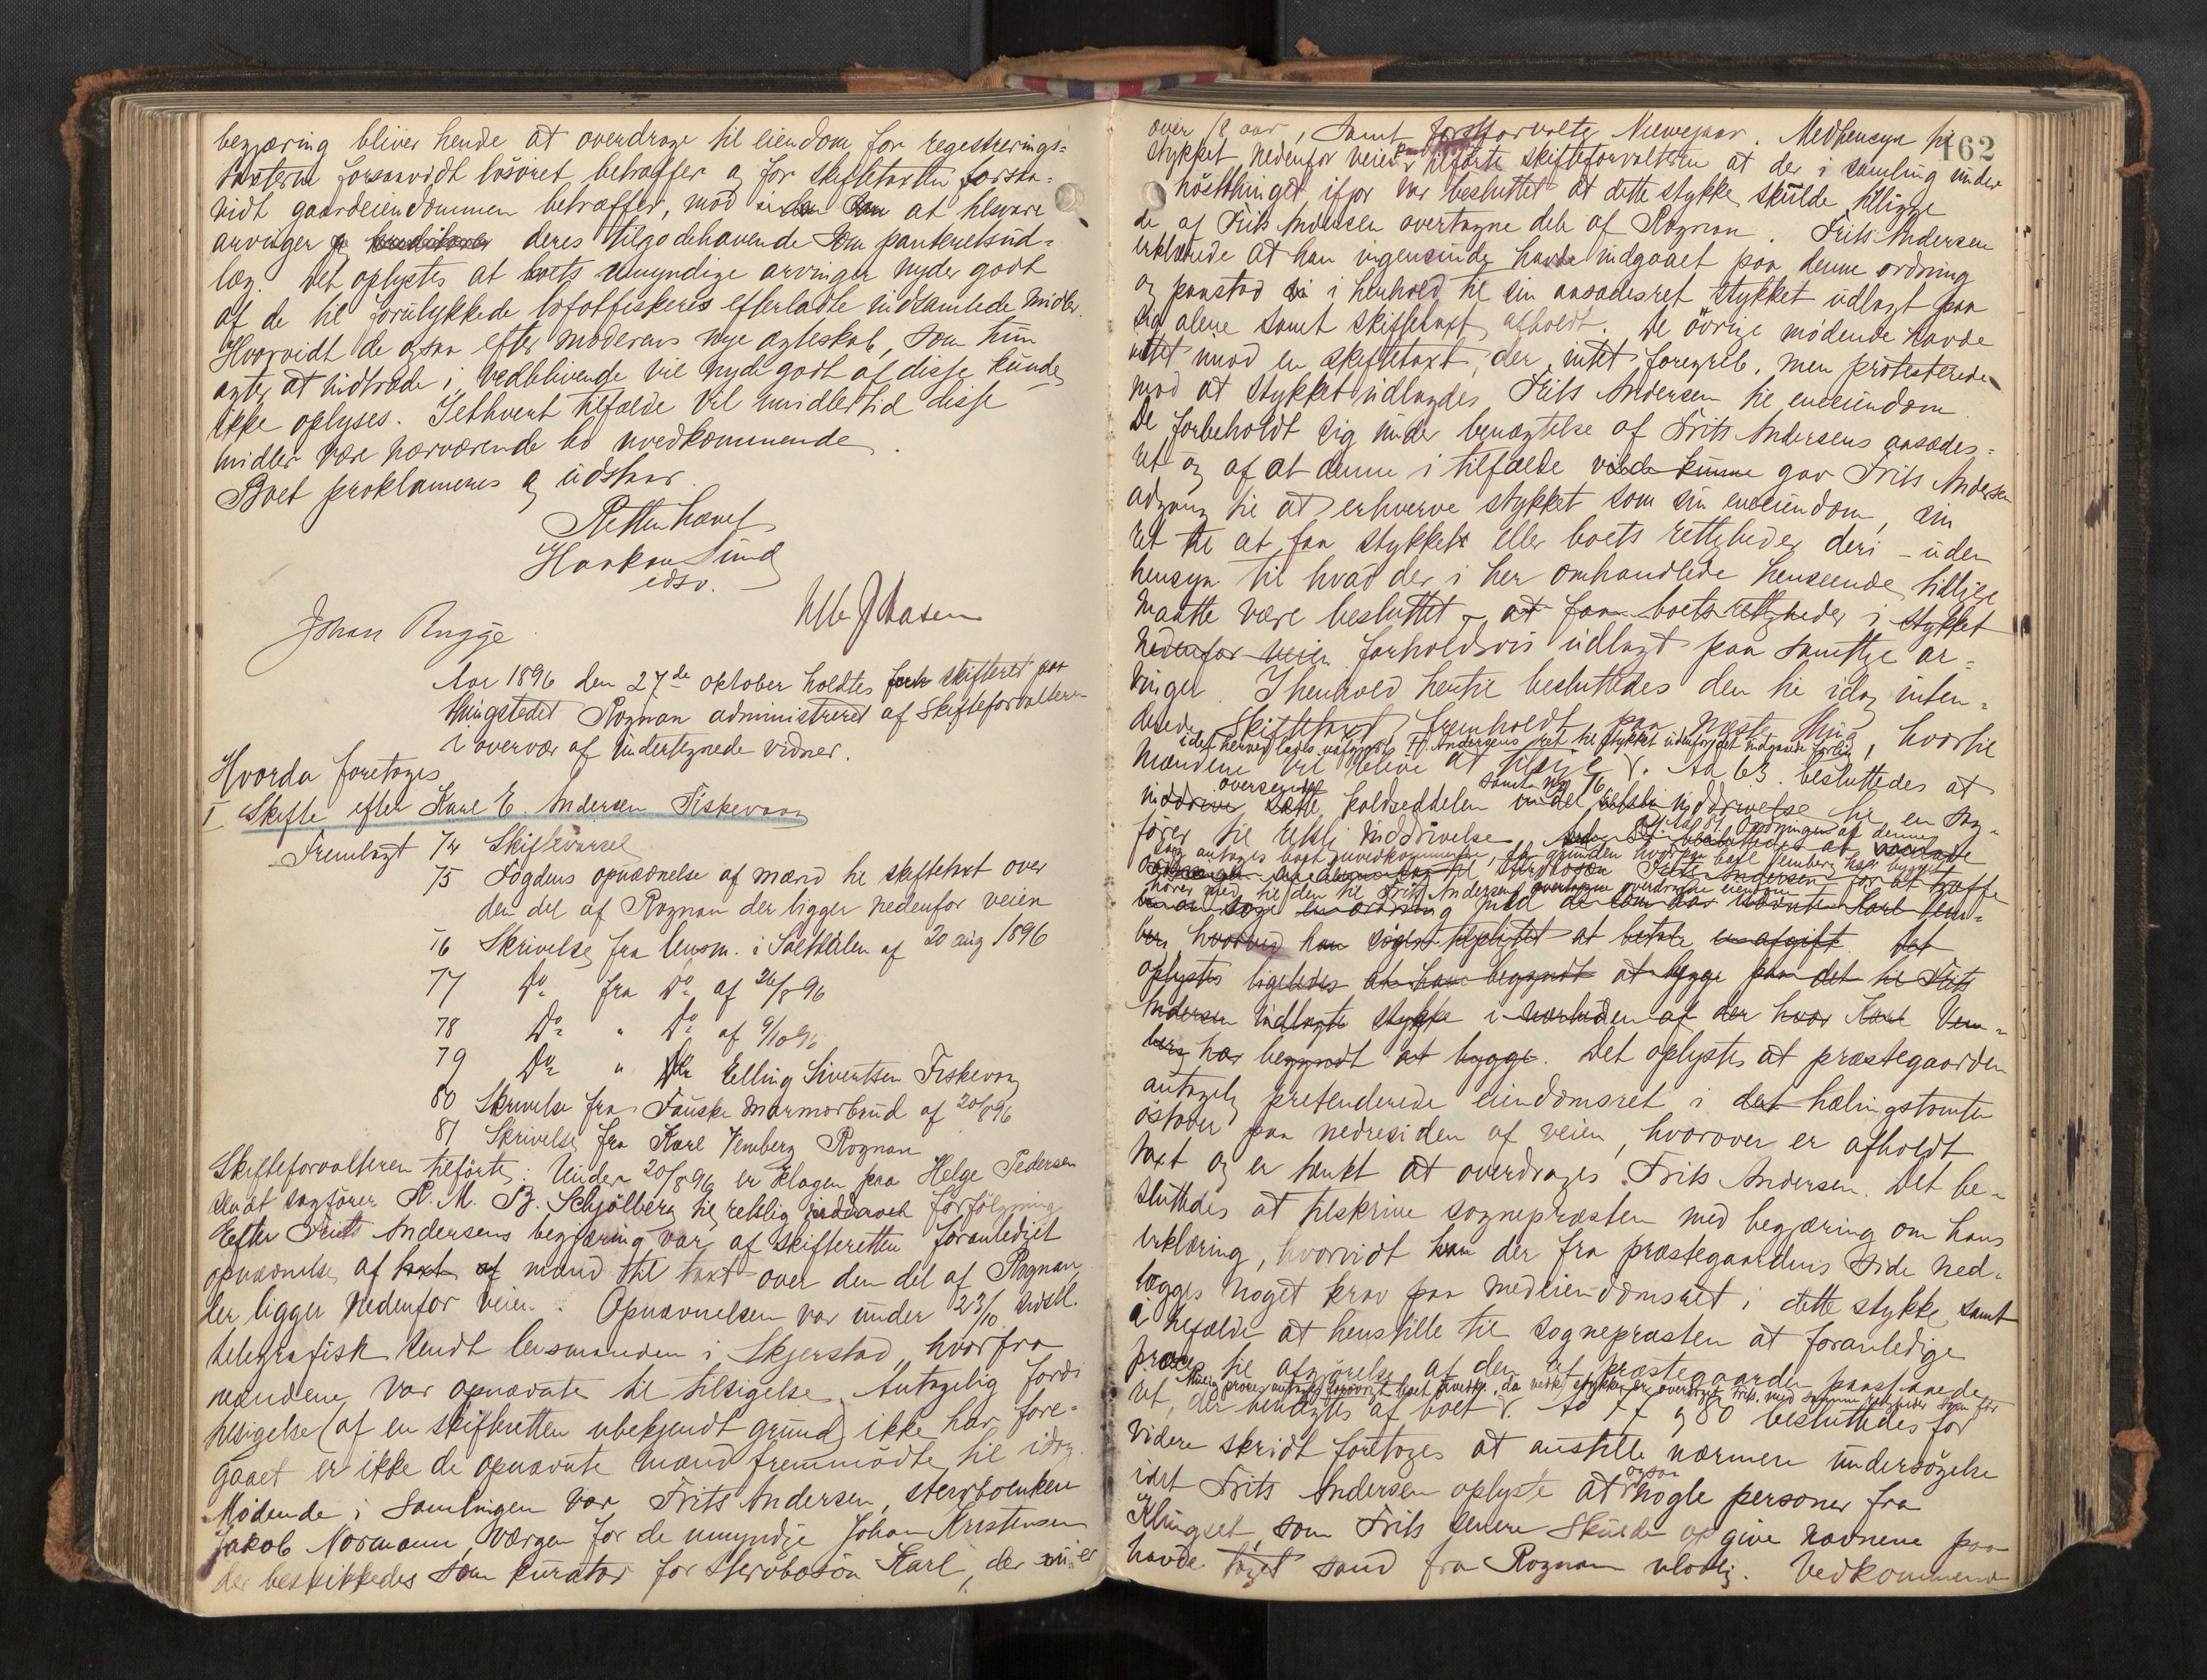 begjæring bliver hende at overdrage til eiendom for regestrerings=
taxterne forsaavidt løsøret betræffer og for skiftetaxten forsaa=
vidt gaardeiendommen betræffer, mod at tilsvare
arvinger og kreditorer deres tilgodehavende som panteretsud=
læg. Det oplystes at boets umyndige arvinger nyder godt
af de til forulykkede lofotfiskeres efterladte indsamlede midler.
Hvorvidt de ogsaa efter moderens nye ægteskab, som hun
agter at indtræde i vedblivende vil nyde godt af disse kunde
ikke oplyses. I ethvert tilfælde vil imidlertid disse
midler være nærværende bo uvedkommende.
Boet proklameres og udstaar.
Retten hævet
Haakon Sund
edsv.
Johan Rugge
Aar 1896 den 27de oktober holdtes skifteret paa
thingstedet Rognan administreret af skifteforvalteren
i overvær af undertegnede vidner.
Hvorda foretoges
I Skifte efter Karl E. Andersen Fiskevaag
Fremlagt 74 Skiftevarsel
75 Fogdens opnævnelse af mænd til skiftetaxt over
den del af Rognan der ligger nedenfor veien
76 Skrivelse fra lensm. i Saltdalen af 20 aug 1896
77 Do fra Do af 26/8 96
78 Do " Do af 9/10 96
79 Do " Elling Sivertsen Fiskevag
80 Skrivelse fra Fauske Marmorbrud af 20/8 96
81 Skrivelse fra Karl Vemberg Rognan
Skifteforvalteren tilførte: Under 20/8 96 er klagen paa Helge Pedersen
sendt sagfører R. M. B. Schjølberg til retslig forfølgning
Efter Frits Andersens begjæring var af skifteretten foranlediget
opnævnelse af mænd til taxt over den del af Rognan,
der ligger nedenfor veien. Opnævnelsen var under 23/10 sidstl.
telegrafisk sendt lensmanden i Skjerstad, hvorfra
mændene var opnævnte til tilsigelse. Antagelig fordi
tilsigelse (af en skifteretten ubekjendt grund) ikke har fore=
gaaet er ikke de opnævnte mænd fremmødte til idag.
Mødende i samlingen var Frits Andersen, stervboenken
Jakob Normann, værgen for de umyndige Johan Kristensen
der beskikkedes som kurator for stervbosøn Karl, der nu er
162
over 18 aar, samt Niewejaar. Medhensyn til
stykket nedenfor veien tilførte skifteforvalteren at der i samling under
høstthinget ifjor var besluttet at dette stykke skulde tilligge
de af Frits Andersen overtagne dele af Rognan. Frits Andersen
erklærede at han ingensinde havde indgaaet paa denne ordning
og paastod i henhold til sin aasædesret stykket udlagt paa
sig alene samt skiftetaxt afholdt. De øvrige mødende havde
intet imod en skiftetaxt, der intet foregreb, men protesterede
mod at stykket udlagdes Frits Andersen til eneeiendom.
De forbeholdt sig under benægtelse af Frits Andersens aasædes=
ret og af at denne i tilfælde vilde kunne gav Frits Andersen
adgang til at erhverve stykket som sin eneeiendom, sin
ret til at faa stykket eller boets rettigheder deri - uden
hensyn til hvad der i her omhandlede henseende tidligere
maatte være besluttet - at faa boets rettigheder i stykket
nedenfor veien forholdsvis udlagt paa samtlige ar=
vinger. I henhold hertil besluttedes den til idag inten=
derede skiftetaxt fremholdt paa næste thing, hvortil
idet herved lades uafgjort Fr. Andersens ret til stykket udenfor det indgaaede forlig
mændene vil blive at tilsige. Ad 63 besluttedes at
oversende samt 76
inddrive sætte holdseddelen til en sag=
fører til retslig inddrivelse.
bers hvorved han søges tilpligtet at betale en afgift. Det
oplystes ligeledes at have begyndt at bygge paa det til Frits
Andersen udlagte stykke i nærheden af der hvor Karl Vem=
berg har begyndt at bygge. Det oplystes at præstegaarden
antagelig pretenderede eiendomsret i det hælingstomten
østover paa nedresiden af veien, hvorover er afholdt
taxt og er tænkt at overdrages Frits Andersen. Det be=
sluttedes at tilskrive sognepræsten med begjæring om hans
erklæring, hvorvidt der fra præstegaardens side ned=
lægges noget krav paa medeiendomsret i dette stykke samt
i tilfælde at henstille til sognepræsten at foranledige
proces til afgjørelse af den af præstegaarden paastaaede
ret, der benægtes af boet. Ad 77 og 80 besluttedes før
videre skridt foretages at anstille nærmere undersøgelse
idet Frits Andersen oplyste at ogsaa nogle personer fra
Klungset, som Frits senere skulde opgive navnene paa
havde taget sand fra Rognan ulovlig. Vedkommende